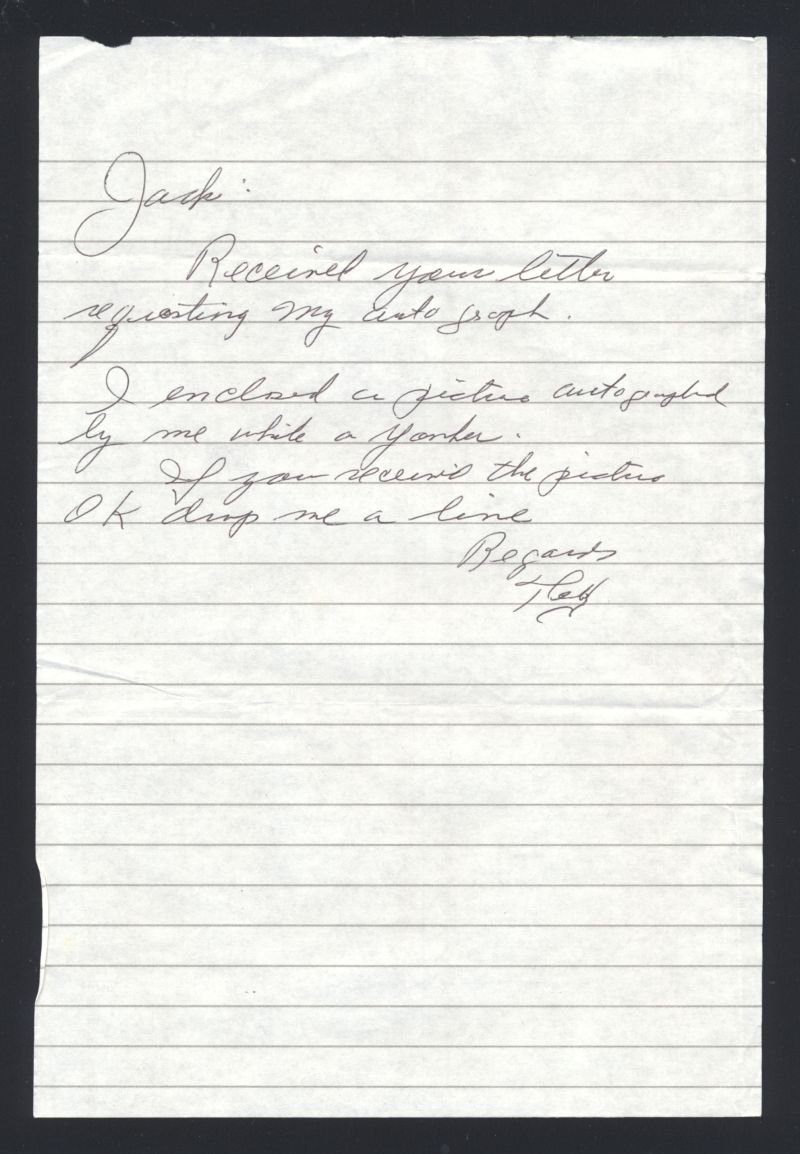 Jack:
Received your letter
requesting my autograph.
I enclosed a picture autographed
by me while a Yankee.
If you received the picture
OK drop me a line
Regards